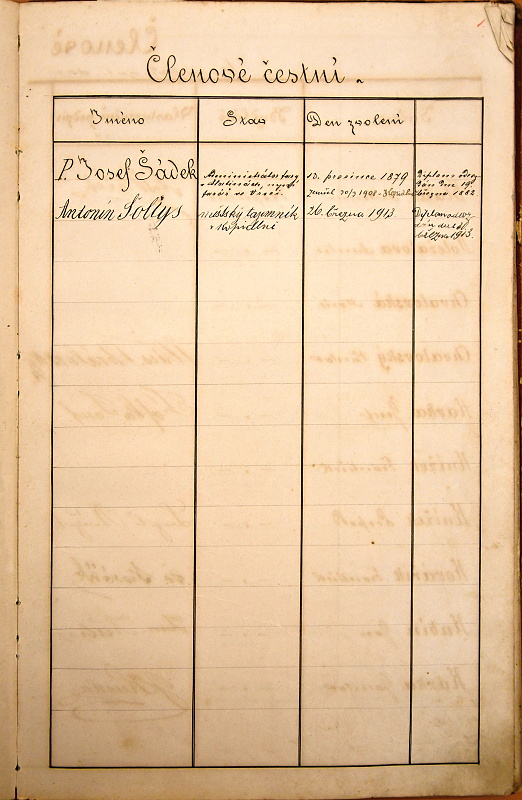 Členové čestní.
Jméno Stav Den zvolení
P. Josef Šádek
Administrátor fary
farář ve
10. prosince 1879
zemřel 20/9 1908
Diplom
dán dne 19.
března 1882
Antonín Šoltys
městský tajemník
v Kopidlně
26. března 1913
Diplom
března 1913.